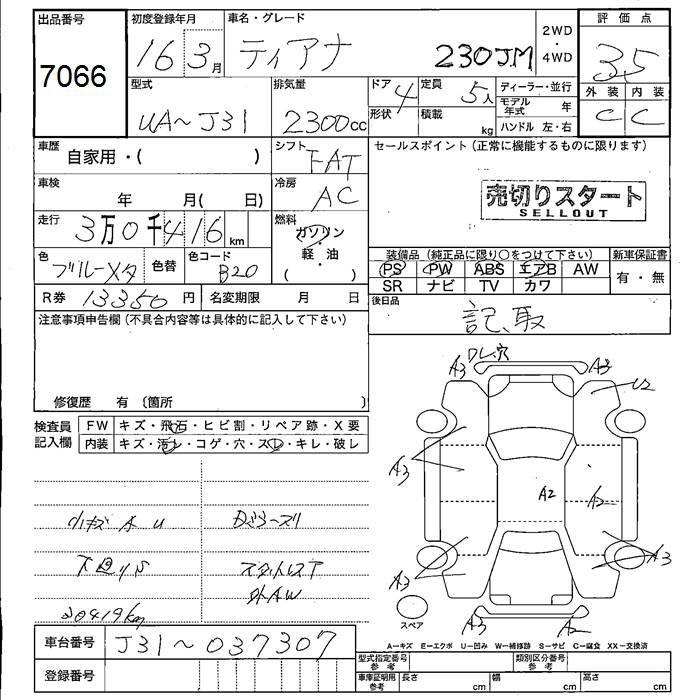 出品番号 初度登録年月 車名・グレード 2WD・4WD 評価点
7066 16 3月 ティアナ 230JM 3.5
型式 排気量 ドア 4 定員 5人 ディーラー・並行 外装 内装
UA~J31 2300cc 形状 積載 kg モデル年式 年 C C
ハンドル 左・右
車歴 自家用・( ) シフト FAT セールスポイント(正常に機能するものに限ります)
車検 年 月( 日) 冷房 AC 売切りスタート
SELLOUT
走行 3万0千416km 燃料 ガソリン・軽・油 ( )
色 ブルーメタ 色替 色コード B20 装備品(純正品に限り○をつけて下さい) 新車保証書
PS PW ABS エアB AW 有・無
SR ナビ TV カワ
R券 13350円 名変期限 月 日 後日品
記.取
注意事項申告欄(不具合内容等は具体的に記入して下さい)
修復歴 有〔箇所 〕
検査員記入欄 FW キズ・飛石・ヒビ割・リペア跡・X要
内装 キズ・汚レ・コゲ・穴・スレ・キレ・破レ
A3 A3 U2
A3 A2 A2
A3 A3
A3 A2
小キズ A U
下回りS
30419km
スタットレスT
外AW
スペア
A-キズ E-エクボ U-凹み W-補修跡 S-サビ C-腐食 XX-交換済
車台番号 J31~037307
登録番号
型式指定番号 参考 類別区分番号 参考
車庫証明用 参考 長さ cm 幅 cm 高さ cm